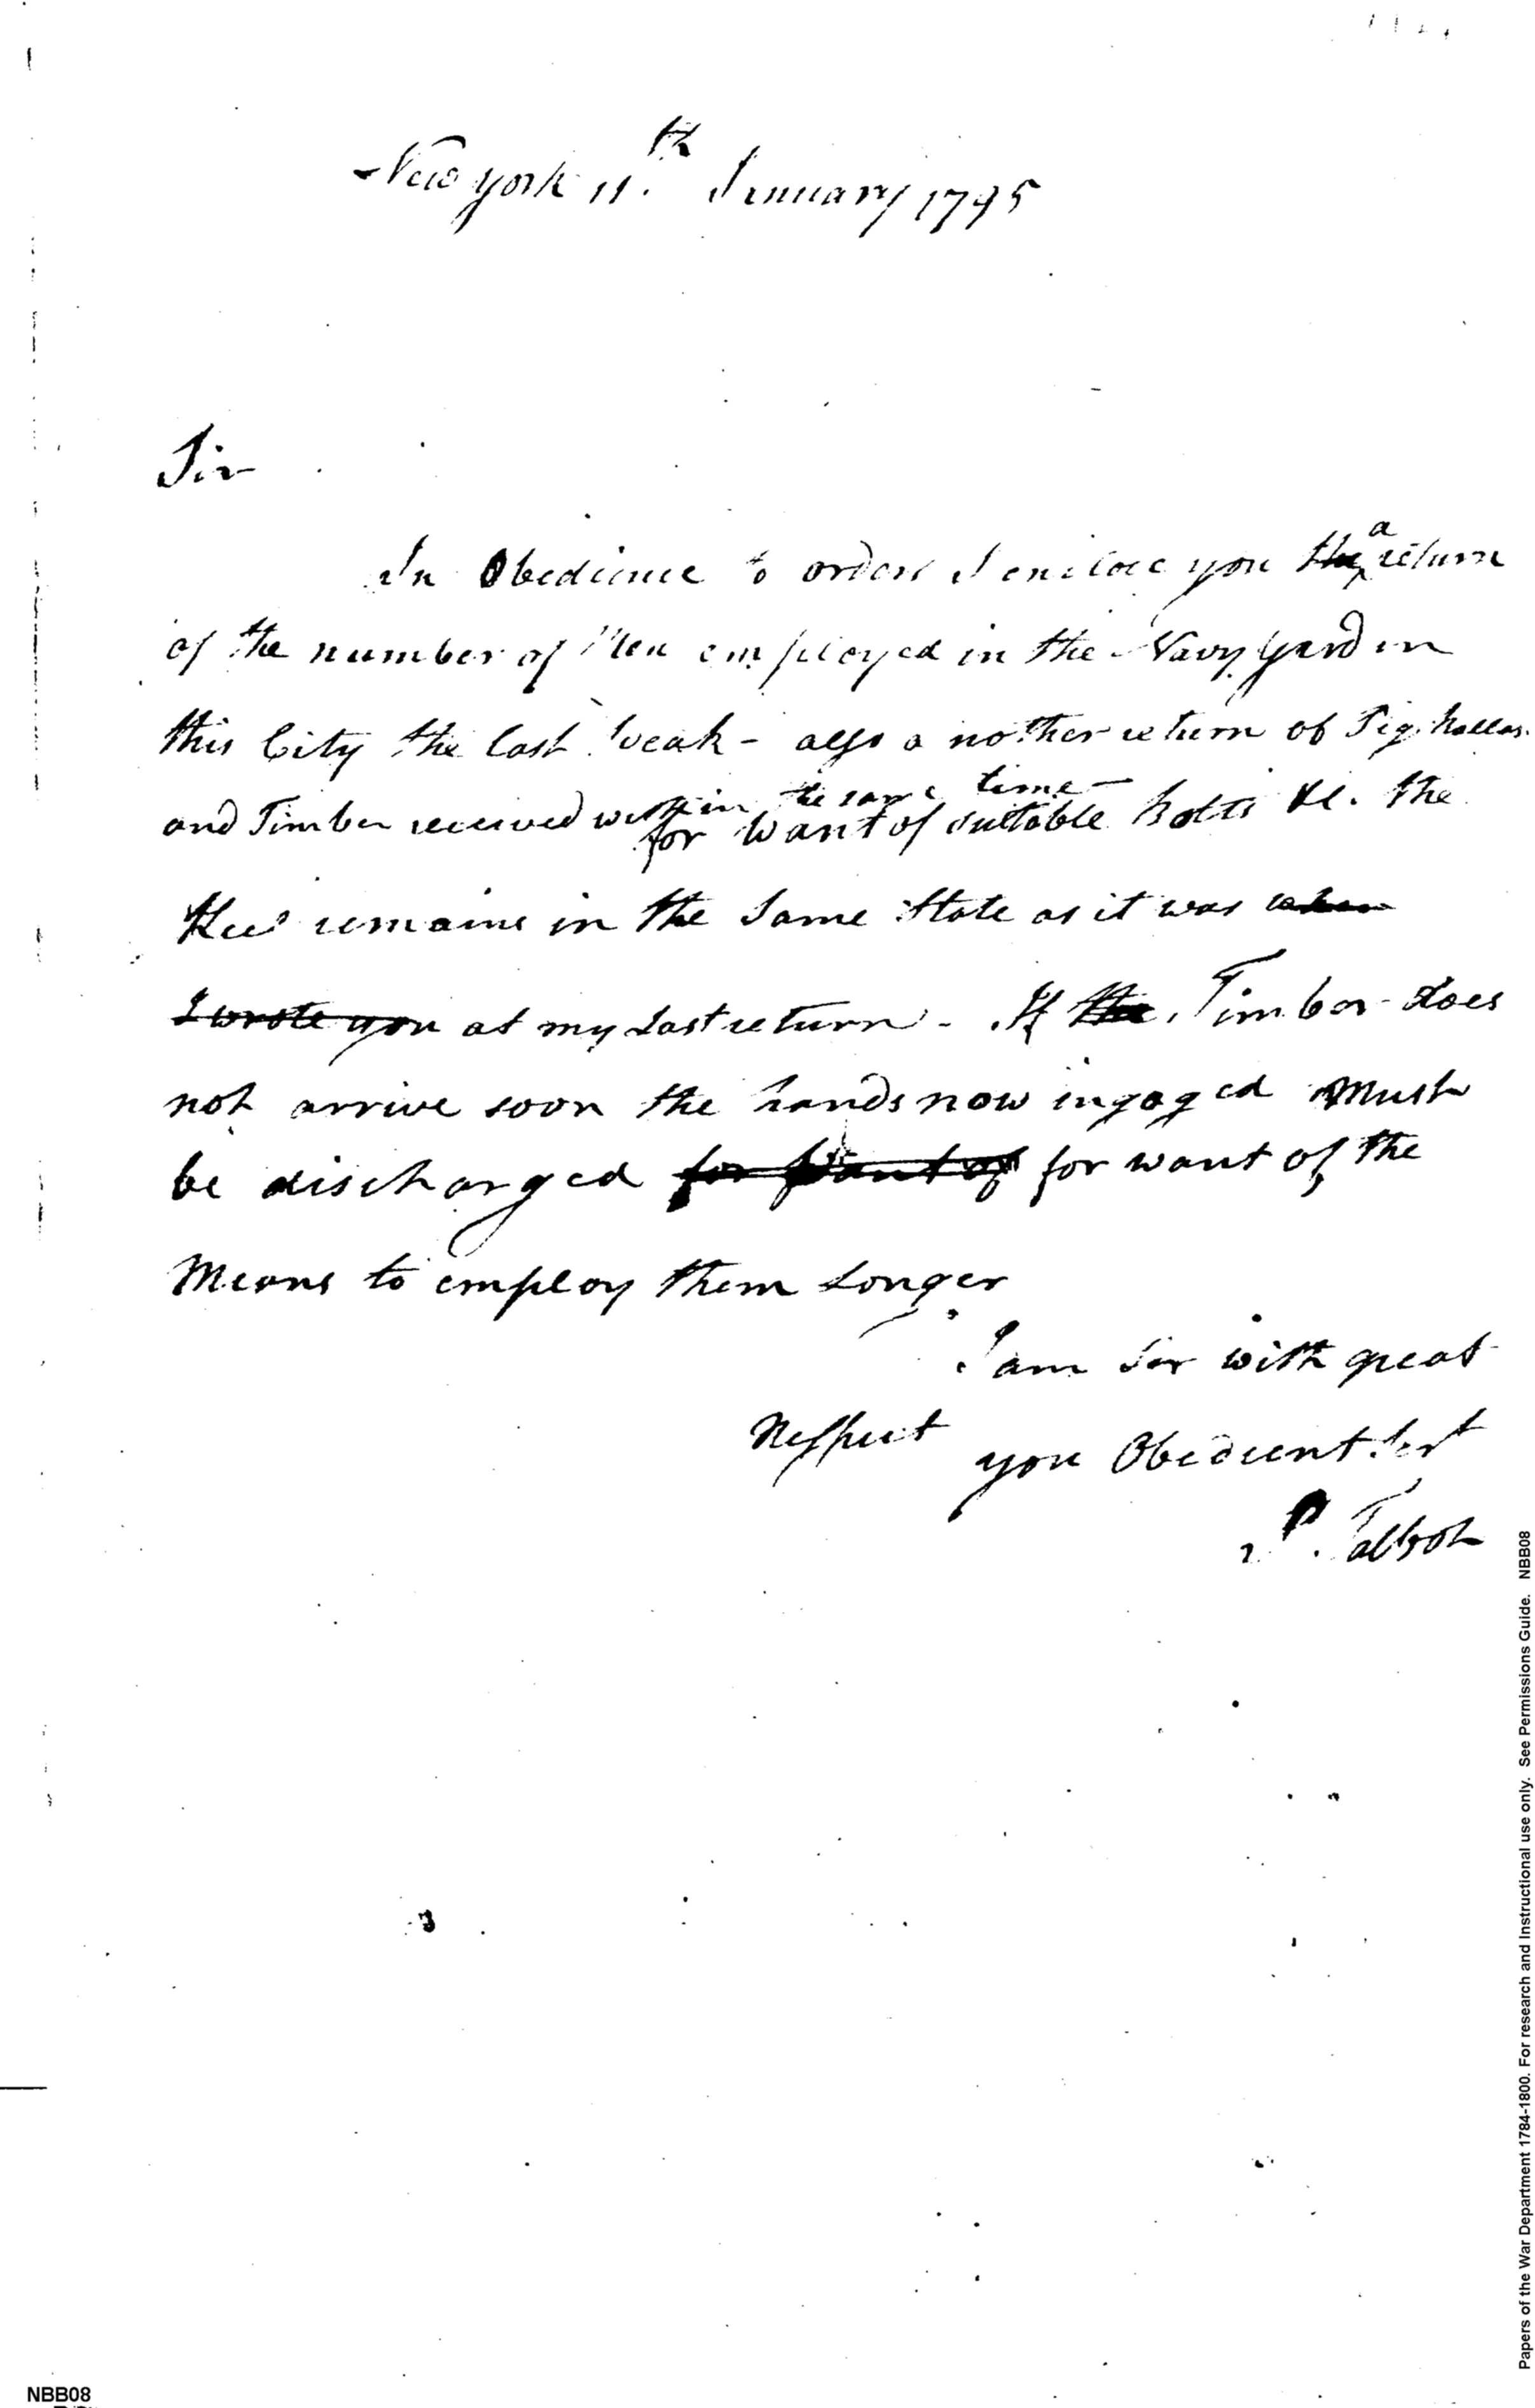 New york 11.th January 1795
Sir
In Obedience to orders I enclose you the a return
of the number of Men employed in the Navy Yard in
this City the last weak - also a nother return of Pig
and Timber received within the same time -
for want of suitable bolts &c. the
Keel remains in the Same State as it was when
I wrote you at my Last return - If the Timber does
not arrive soon the hands now ingaged Must
be discharged for want of for want of the
Means to employ them Longer
I am Sir with great
Respect
you Obedient Sert
Talbot
Papers of the War Department 1784-1800. For research and Instructional use only. See Permissions Guide. NBB08
NBB08